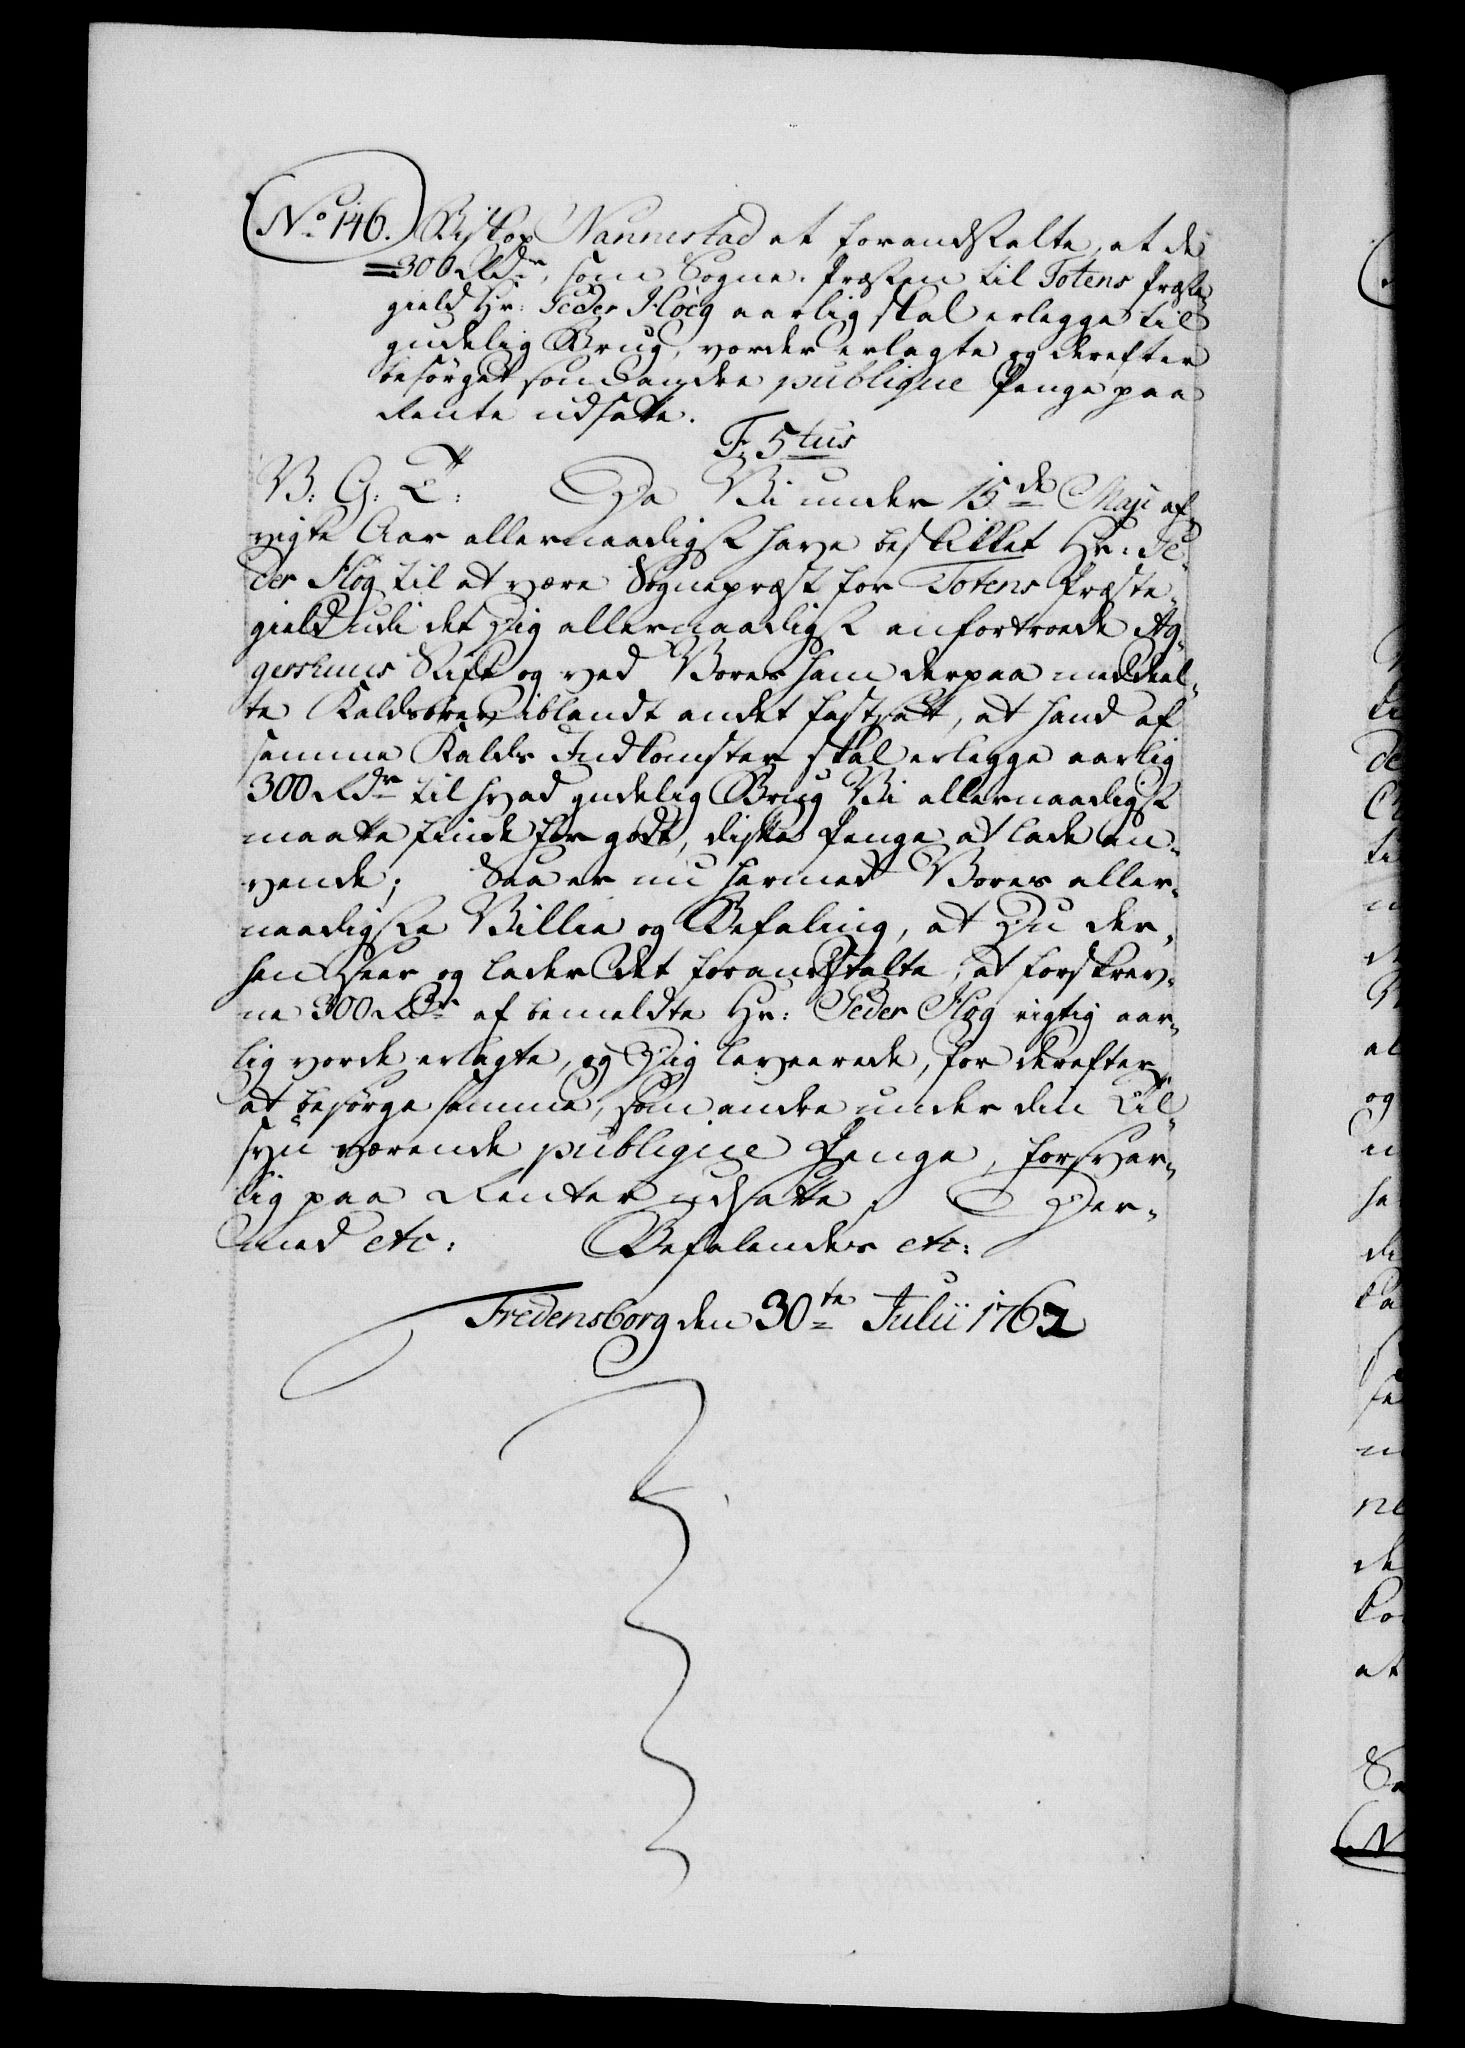 No 146. Biskop Nannestad at forandstalte, at de
300 Rdr, som Sogne-Præsten til Totens Præste
gield Hr: Peder Høeg aarlig skal erlegge til
gudelig Brug, vorder erlagte og derefter
besørget som andre publique Penge paa
Rente udsatte.
F: 5tus
V: G: T: Da Vi under 15de Maji af-
vigte Aar allernaadigst have beskikket Hr: Pe-
der Høg til at være Sognepræst for Totens Præste-
gield udi det Dig allernaadigst anfortroede Ag-
gershuus Stift og ved Vores ham derpaa meddeel-
te Kaldsbrev iblandt andet fastsatt, at hand af
samme Kalds Indkomster skal erlegge aarlig
300 Rdr til hvad gudelig Brug Vi allernaadigst
maatte finde for godt, diste Penge at lade an-
vende; Saa er nu hermed Vores aller-
naadigste Villie og Befaling, at Du der-
hen seer og lader det forandstalte, at forskrev-
ne 300 Rdr af bemeldte Hr: Peder Høg rigtig aar-
lig vorde erlagte, og Dig leveerede, for derefter
at besørge samme, som andre under din Til-
syn værende publique Penge, forsvar-
lig paa Renter udsatte, Der-
med etc: Befalendes etc:
Fredensborg den 30te Julii 1762